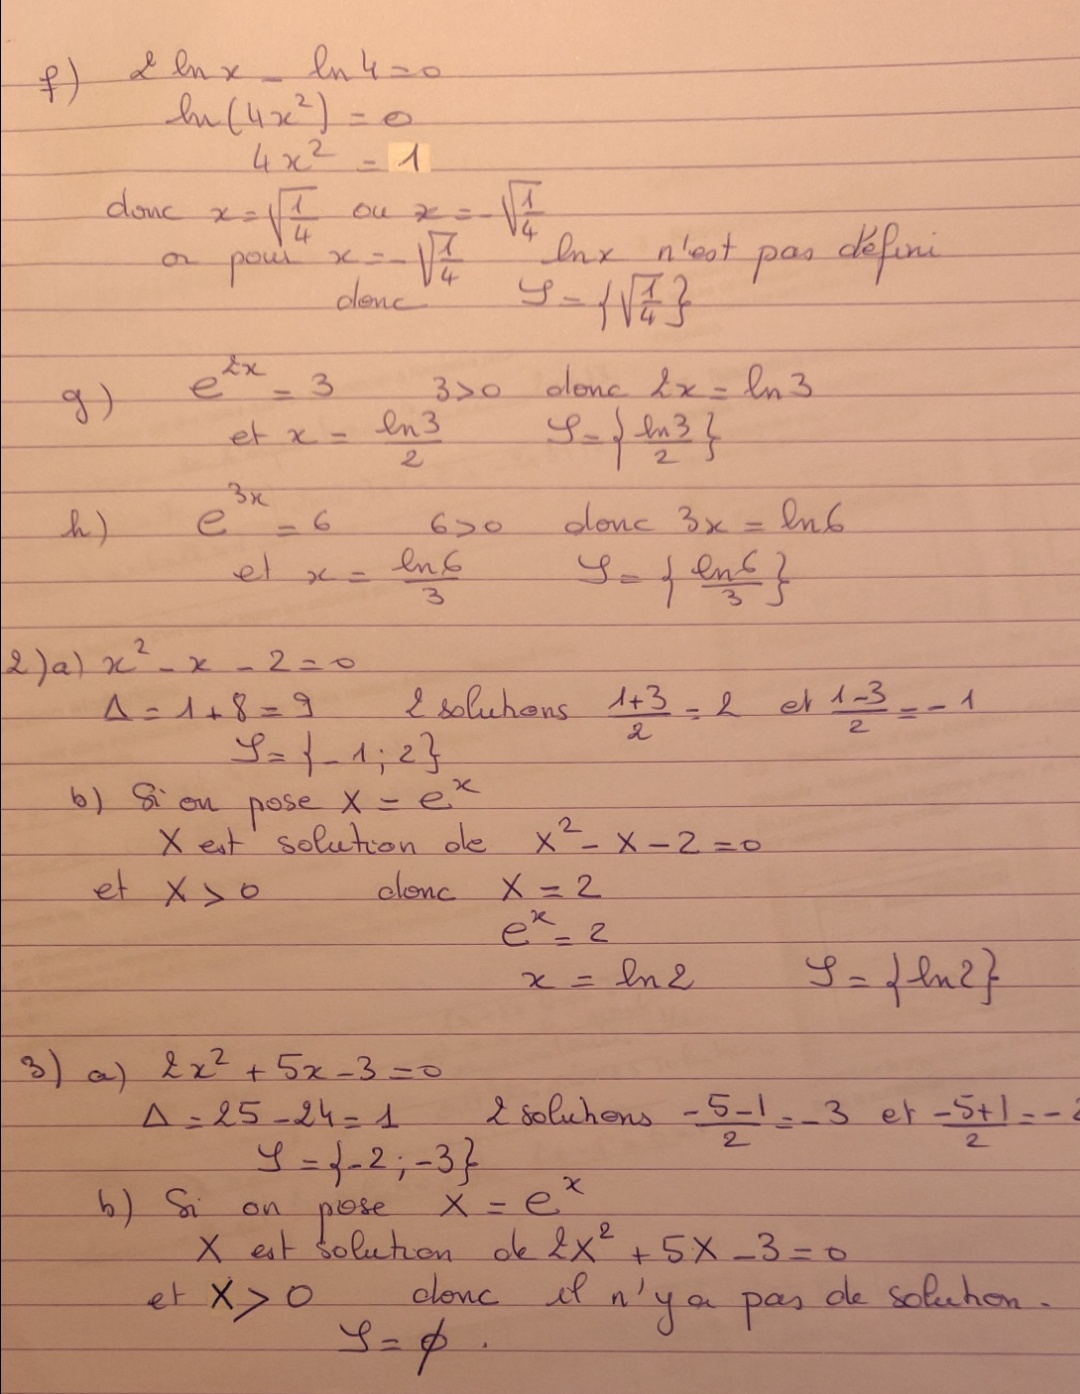 f) 2 ln x - ln 4 = 0
ln(4x²) = 0
4x² = 1
donc x = √(1/4) ou x = -√(1/4)
or pour x = -√(1/4) ln x n'est pas défini
donc S = {√(1/4)}
g) e^(2x) = 3 3>0 donc 2x = ln 3
et x = ln3/2 S = {ln3/2}
h) e^(3x) = 6 6>0 donc 3x = ln 6
et x = ln6/3 S = {ln6/3}
2) a) x² - x - 2 = 0
Δ = 1 + 8 = 9 2 solutions (1+3)/2 = 2 et (1-3)/2 = -1
S = {-1; 2}
b) Si on pose X = e^x
X est solution de X² - X - 2 = 0
et X > 0 donc X = 2
e^x = 2
x = ln 2 S = {ln 2}
3) a) 2x² + 5x - 3 = 0
Δ = 25 - 24 = 1 2 solutions (-5-1)/2 = -3 et (-5+1)/2 = -2
S = {-2; -3}
b) Si on pose X = e^x
X est solution de 2X² + 5X - 3 = 0
et X > 0 donc il n'y a pas de solution.
S = ∅.